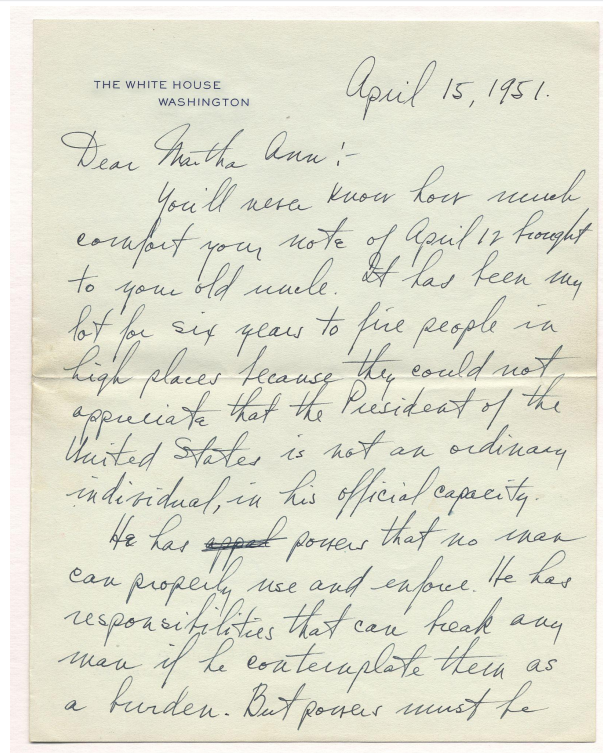 THE WHITE HOUSE
WASHINGTON
April 15, 1951.
Dear Martha Ann:-
You'll never know how much
comfort your note of April 12 brought
to your old uncle. It has been my
lot for six years to fire people in
high places because they could not
appreciate that the President of the
United States is not an ordinary
individual, in his official capacity.
He has powers that no man
can properly use and enforce. He has
responsibilities that can break any
man if he contemplate them as
a burden. But powers must be